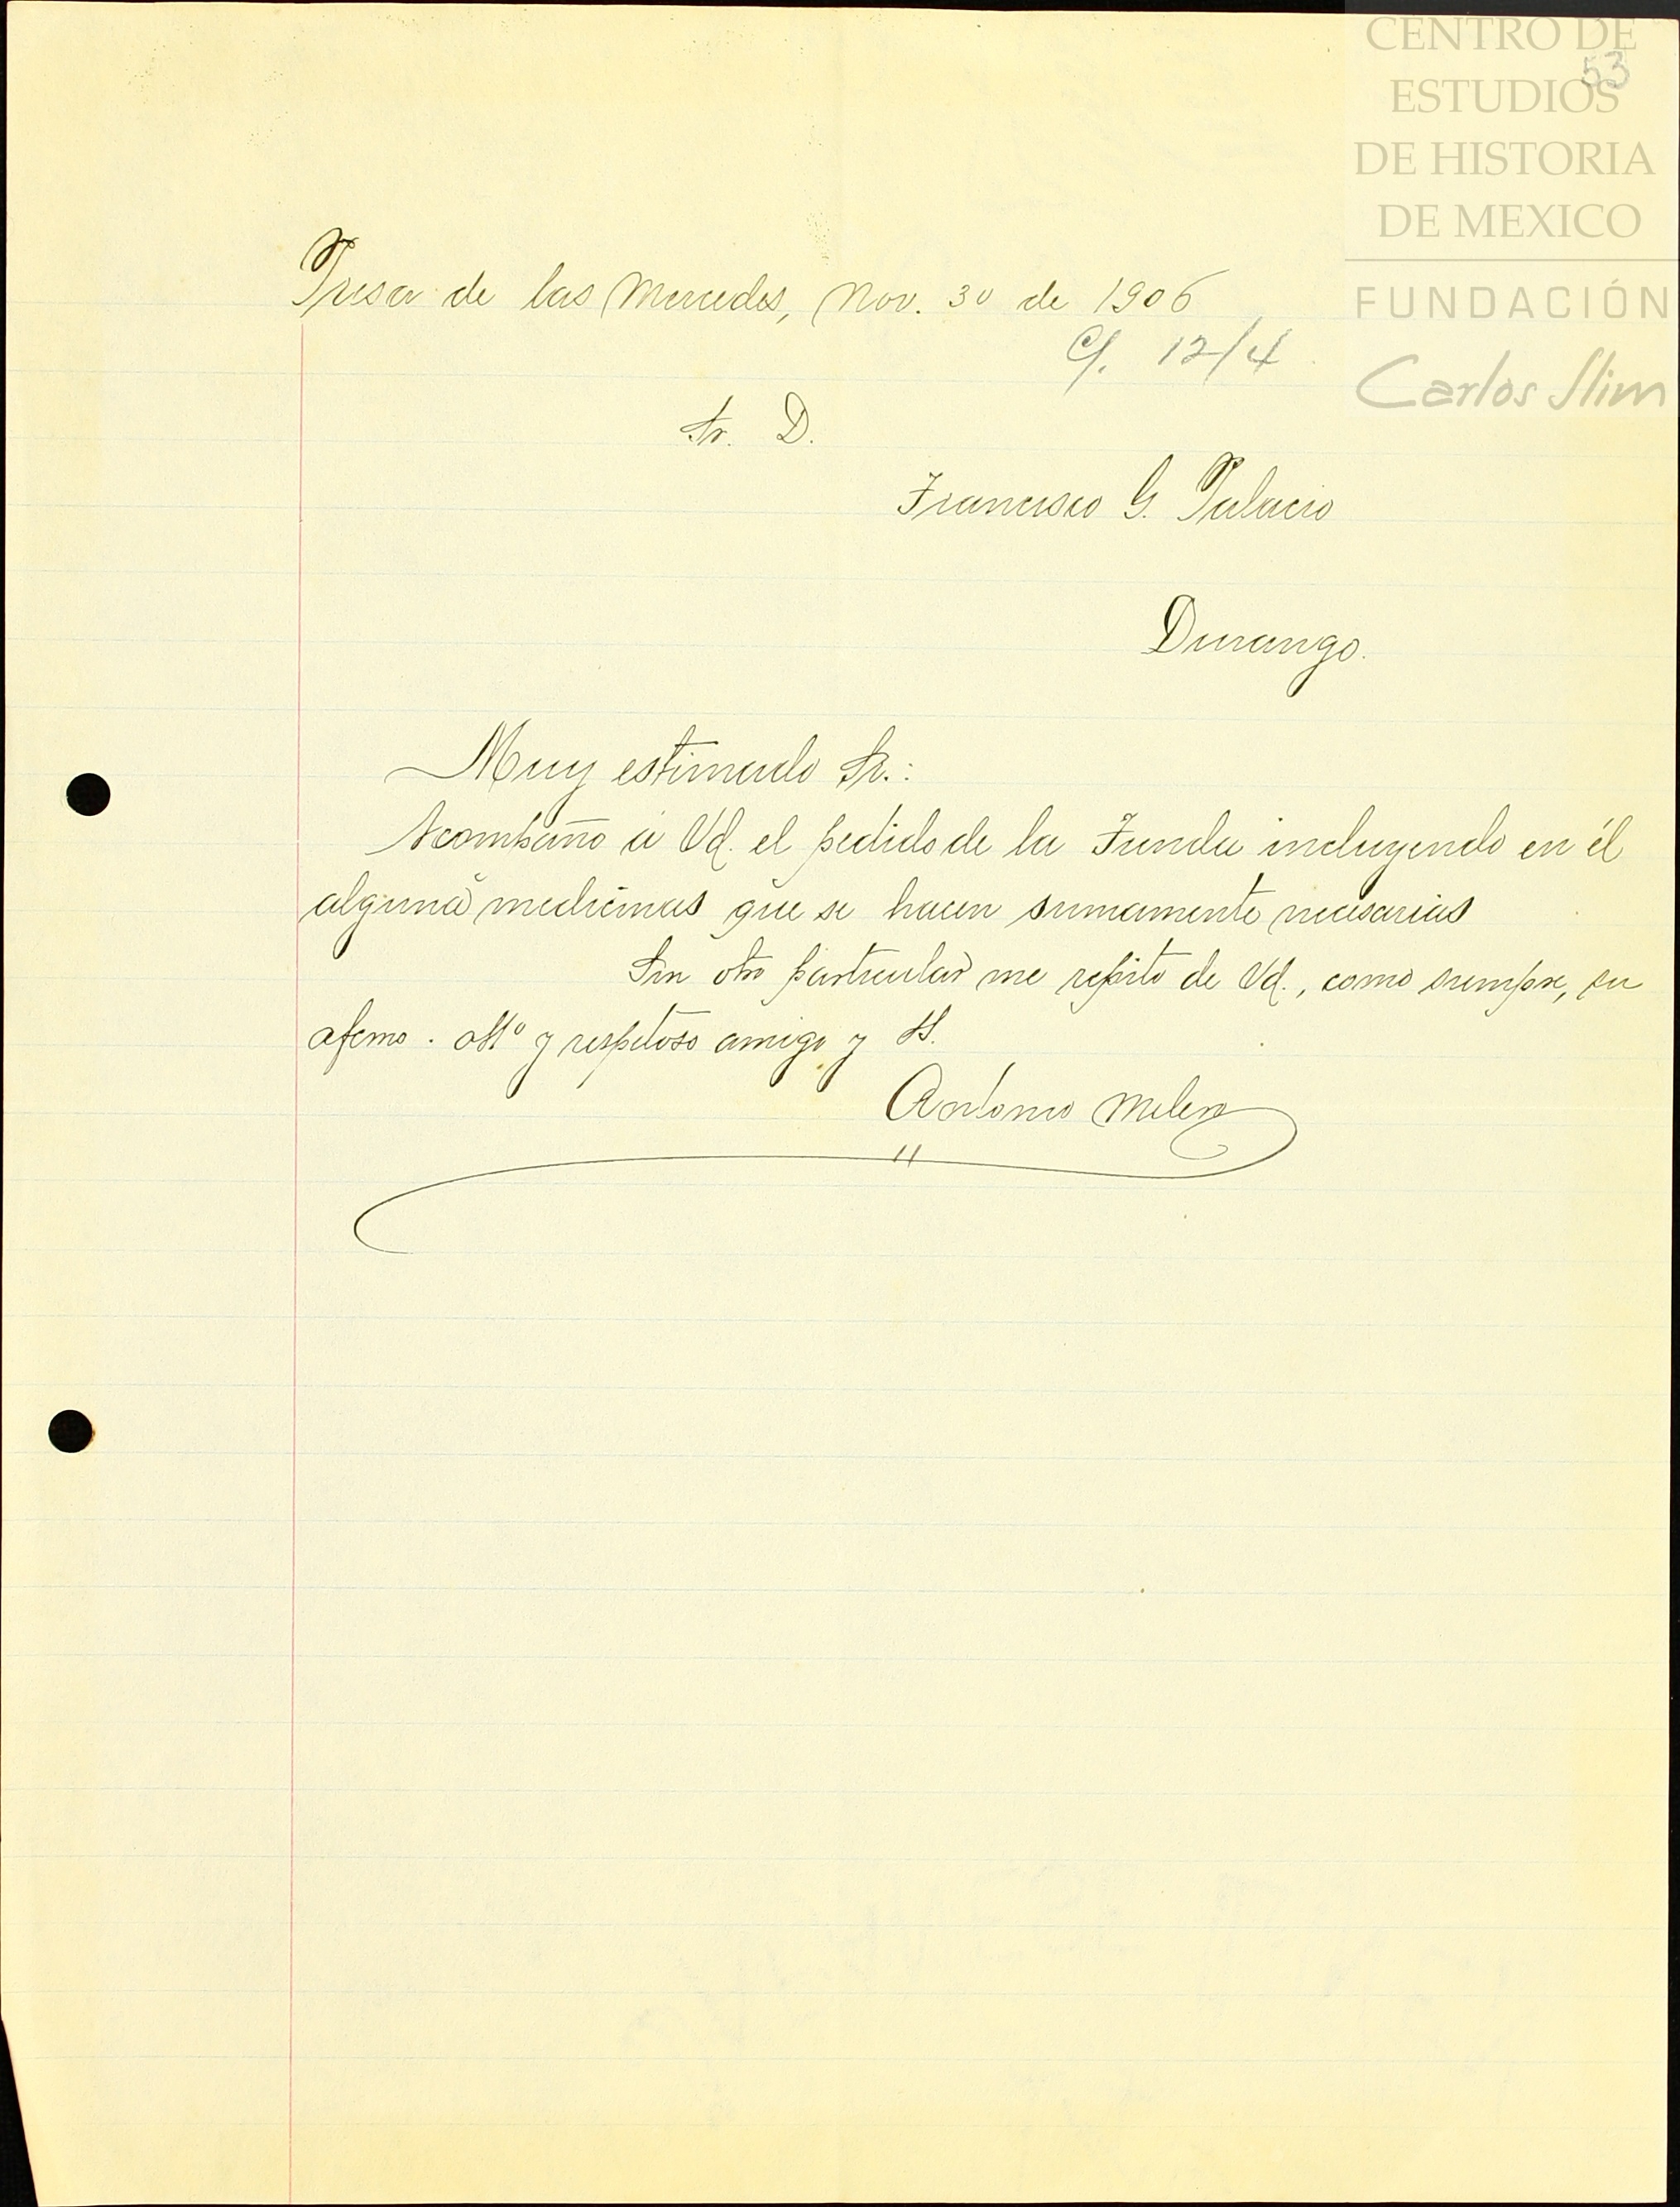 CENTRO DE
ESTUDIOS
DE HISTORIA
DE MEXICO
FUNDACIÓN
Carlos Slim
53
Presa de las Mercedes, Nov. 30 de 1906
C/. 12/4
Sr. D.
Francisco G. Palacio
Durango.
Muy estimado Sr.:
Acompaño á Vd. el pedido de la Tienda incluyendo en él
algunas medicinas que se hacen sumamente necesarias
Sin otro particular me repito de Vd., como siempre, su
afcmo. atto y respetoso amigo y SS.
Antonio